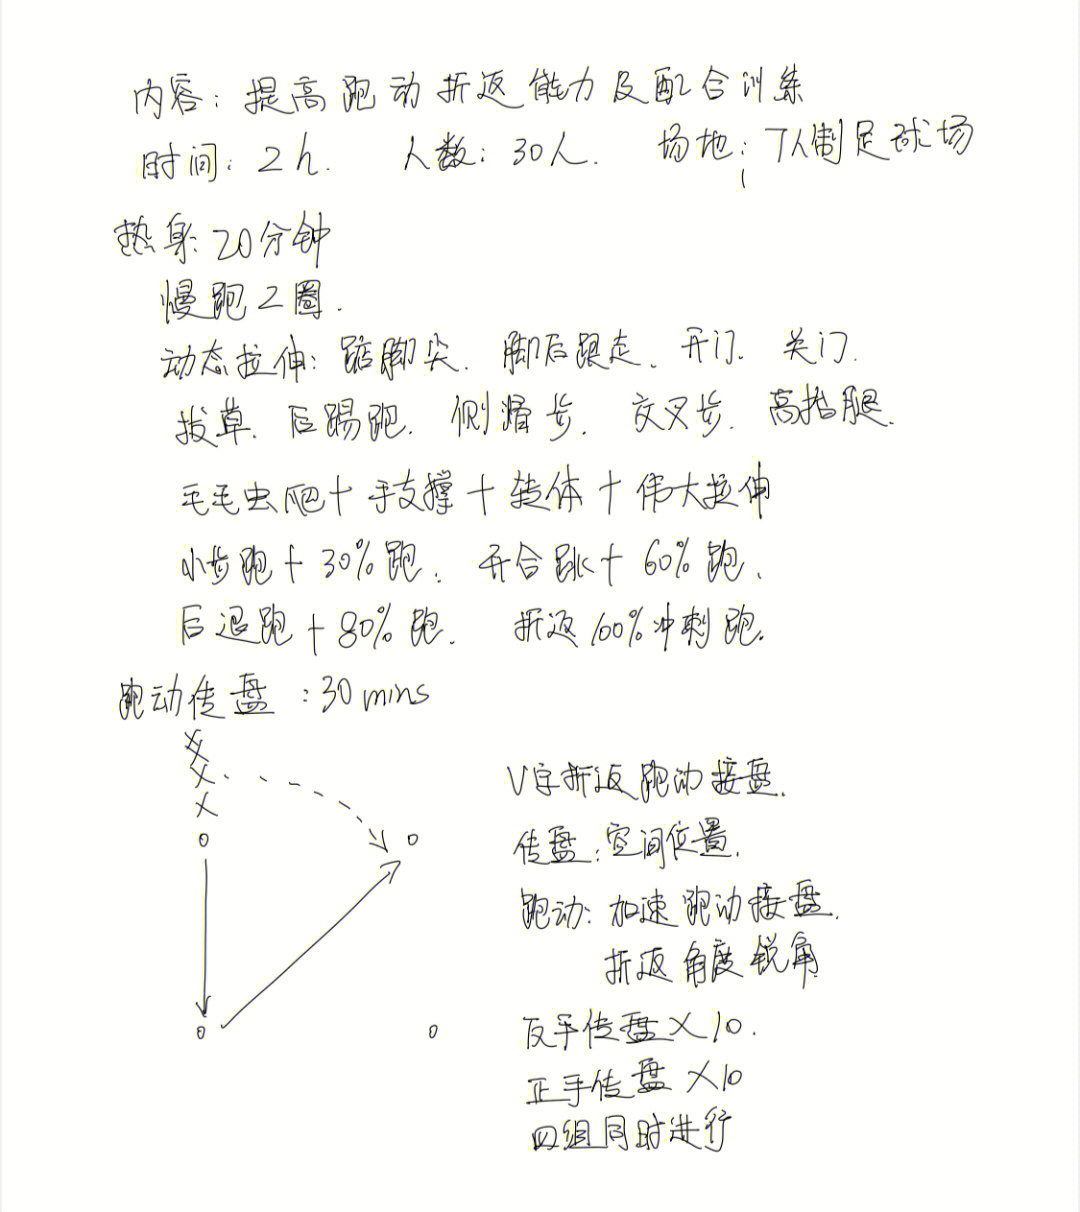 内容：提高跑动折返能力及配合训练
时间：2h.  人数：30人.  场地：7人制足球场
热身：20分钟
慢跑2圈.
动态拉伸：踮脚尖. 脚后跟走. 开门. 关门.
拔草. 后踢跑. 侧滑步. 交叉步. 高抬腿.
毛毛虫爬+手支撑+转体+伟大拉伸
小步跑+30%跑. 开合跳+60%跑.
后退跑+80%跑. 折返100%冲刺跑.
跑动传盘：30mins
V字折返跑动接盘.
传盘：空间位置.
跑动：加速跑动接盘.
折返角度锐角
反手传盘×10.
正手传盘×10
四组同时进行